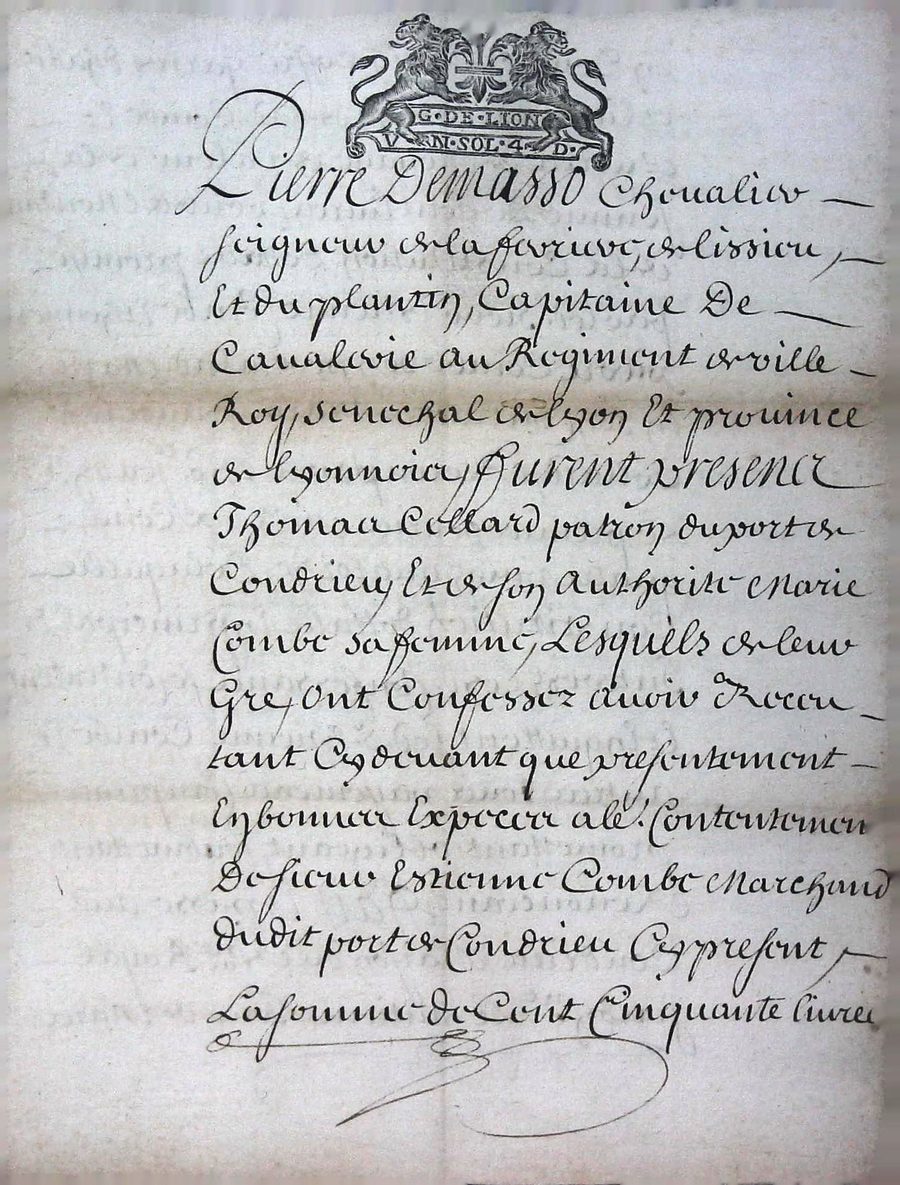 G·DE·LION
VN·SOL·4·D·
Pierre Demasso Cheualier
seigneur de la ferriere, de lissieu,
Et du plantin, Capitaine De
Caualerie au Regiment de ville
Roy, senechal de lyon Et prouince
de lyonnois, ffurent presens
Thomas Collard patron du port de
Condrieu Et de son Authorité Marie
Combe sa femme, Lesquels de leur
Gre, ont Confessez auoir Receu
tant Cy deuant que presentement
En bonnes Expeces a le. Contentemen
De sieur Estienne Combe Marchand
dudit port de Condrieu Cy present,
La somme de Cent Cinquante liures